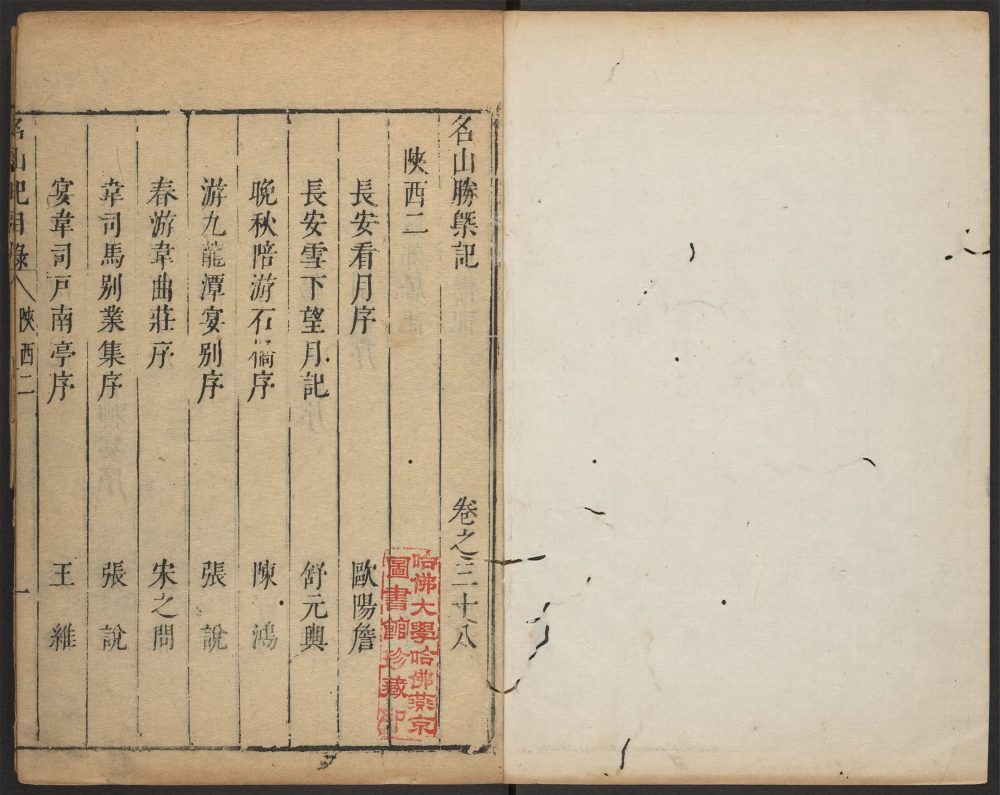 名山勝槩記 卷之三十八
陝西二
長安看月序 歐陽詹
長安雪下望月記 舒元輿
晚秋陪游石橋序 陳鴻
游九龍潭宴別序 張說
春游韋曲莊序 宋之問
韋司馬別業集序 張說
宴韋司戸南亭序 王維
名山記目錄 陝西二 一
哈佛大學哈佛燕京
圖書館珍藏印